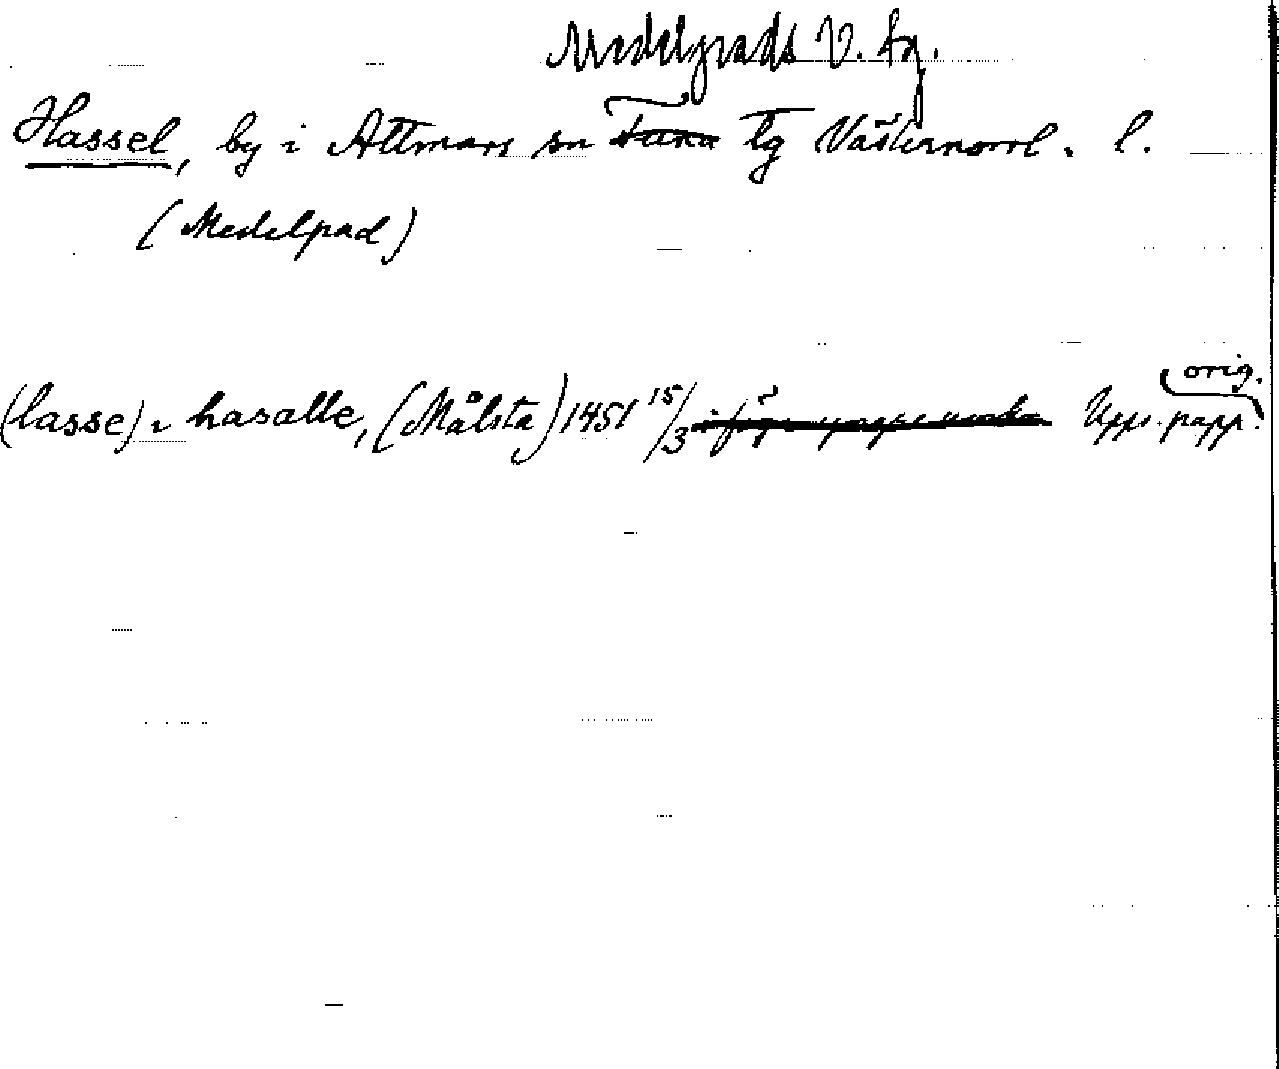 Medelpads V. tg.
Hassel, by i Attmars sn Tuna tg Västernorrl. l.
(Medelpad)
orig.
(lasse) i hasalle, (Målsta) 1451 15/3 Upps. papp.